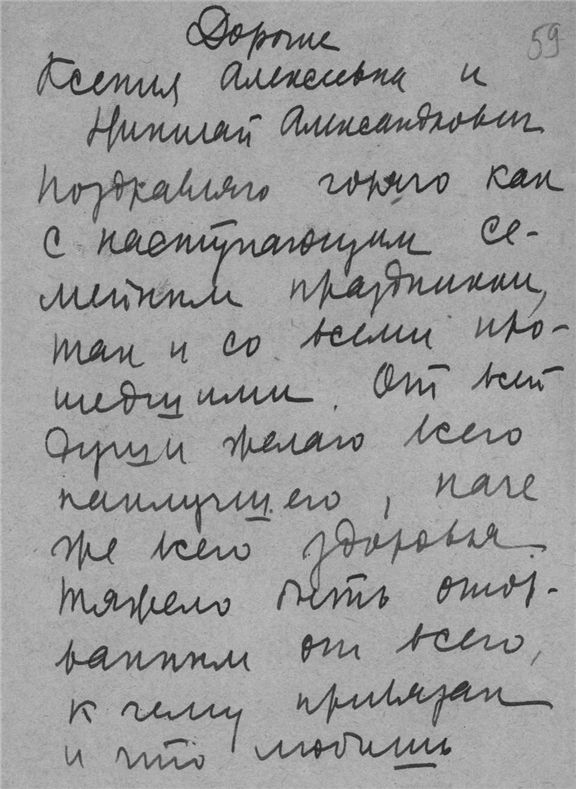 59
Дорогие
Ксения Алексеевна и
Николай Александрович
Поздравляю горячо как
с наступающим се-
мейным праздником,
так и со всеми про-
шедшими. От всей
души желаю всего
наилучшего, паче
же всего здоровья
Тяжело быть отор-
ванным от всего,
к чему привязан
и что любишь